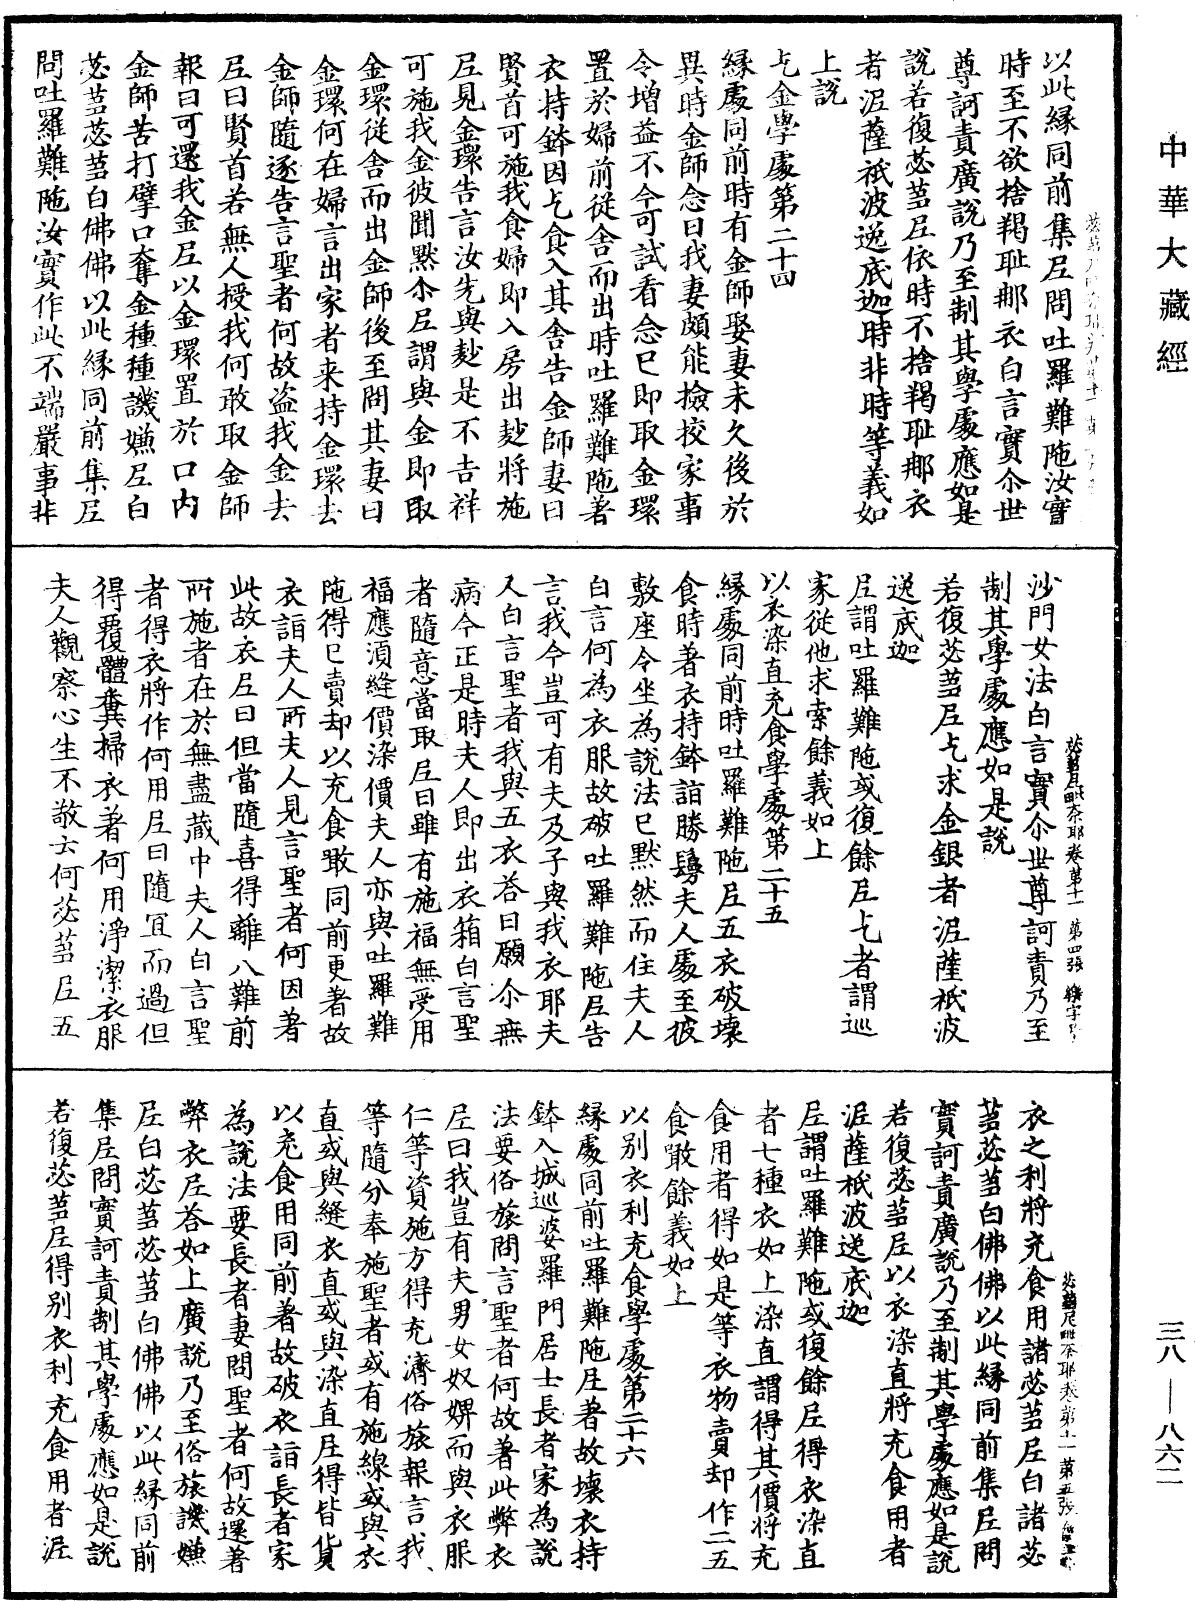 中華大藏經
以此緣同前集尼問吐羅難陁汝實
時至不欲捨羯耻那衣白言實尒世
尊訶責廣說乃至制其學處應如是
說若復苾芻尼依時不捨羯耻那衣
者泥薩祇波逸底迦時非時等義如
上說
乞金學處第二十四
緣處同前時有金師娶妻未久後於
異時金師念曰我妻頗能撿挍家事
令增益不今可試看念已即取金環
置於婦前從舍而出時吐羅難陁著
衣持鉢因乞食入其舍告金師妻曰
賢首可施我食婦即入房出麨將施
尼見金環告言汝先與麨是不吉祥
可施我金彼聞默尒尼謂與金即取
金環從舍而出金師後至問其妻曰
金環何在婦言出家者来持金環去
金師隨逐告言聖者何故盜我金去
尼曰賢首若無人授我何敢取金師
報曰可還我金尼以金環置於口内
金師苦打擘口奪金種種譏嫌尼白
苾芻苾芻白佛佛以此緣同前集尼
問吐羅難陁汝實作此不端嚴事非
苾芻尼毗奈耶卷第十一 第四張
沙門女法白言實尒世尊訶責乃至
制其學處應如是說
若復苾芻尼乞求金銀者泥薩祇波
逸底迦
尼謂吐羅難陁或復餘尼乞者謂巡
家從他求索餘義如上
以衣染直充食學處第二十五
緣處同前時吐羅難陁尼五衣破壞
食時著衣持鉢詣勝鬘夫人處至彼
敷座令坐為說法已默然而住夫人
白言何為衣服故破吐羅難陁尼告
言我今豈可有夫及子與我衣耶夫
人白言聖者我與五衣荅曰願尒無
病今正是時夫人即出衣箱白言聖
者隨意當取尼曰雖有施福無受用
福應須縫價染價夫人亦與吐羅難
陁得已賣却以充食噉同前更著故
衣詣夫人所夫人見言聖者何因著
此故衣尼曰但當隨喜得離八難前
所施者在於無盡藏中夫人白言聖
者得衣將作何用尼曰隨宜而過但
得覆體糞掃衣著何用淨潔衣服
夫人觀察心生不敬云何苾芻尼五
苾芻尼毗奈耶卷第十一 第五張
衣之利將充食用諸苾芻尼白諸苾
芻苾芻白佛佛以此緣同前集尼問
實訶責廣說乃至制其學處應如是說
若復苾芻尼以衣染直將充食用者
泥薩祇波逸底迦
尼謂吐羅難陁或復餘尼得衣染直
者七種衣如上染直謂得其價將充
食用者得如是等衣物賣却作二五
食噉餘義如上
以別衣利充食學處第二十六
緣處同前吐羅難陁尼著故壞衣持
鉢入城巡婆羅門居士長者家為說
法要俗旅問言聖者何故著此弊衣
尼曰我豈有夫男女奴婢而與衣服
仁等資施方得充濟俗旅報言我
等隨分奉施聖者或有施線或與衣
直或與縫衣直或與染直尼得皆貨
以充食用同前著故破衣詣長者家
為說法要長者妻問聖者何故還著
弊衣尼荅如上廣說乃至俗旅譏嫌
尼白苾芻苾芻白佛佛以此緣同前
集尼問實訶責制其學處應如是說
若復苾芻尼得別衣利充食用者泥
三八—八六二